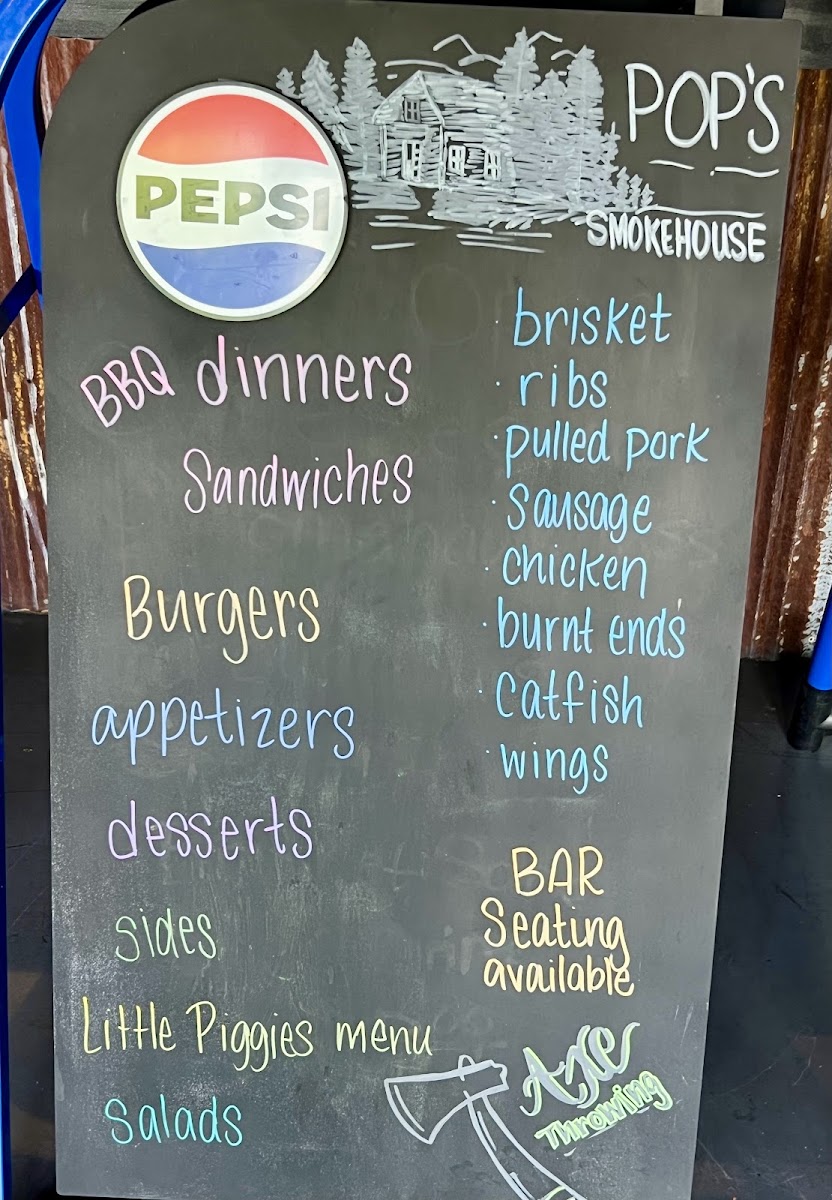 PEPSI
POP'S
SMOKEHOUSE
BBQ dinners
Sandwiches
Burgers
appetizers
desserts
sides
Little Piggies menu
Salads
· brisket
· ribs
· pulled pork
· Sausage
· chicken
· burnt ends'
· Catfish
· wings
BAR
Seating
available
Axe
Throwing